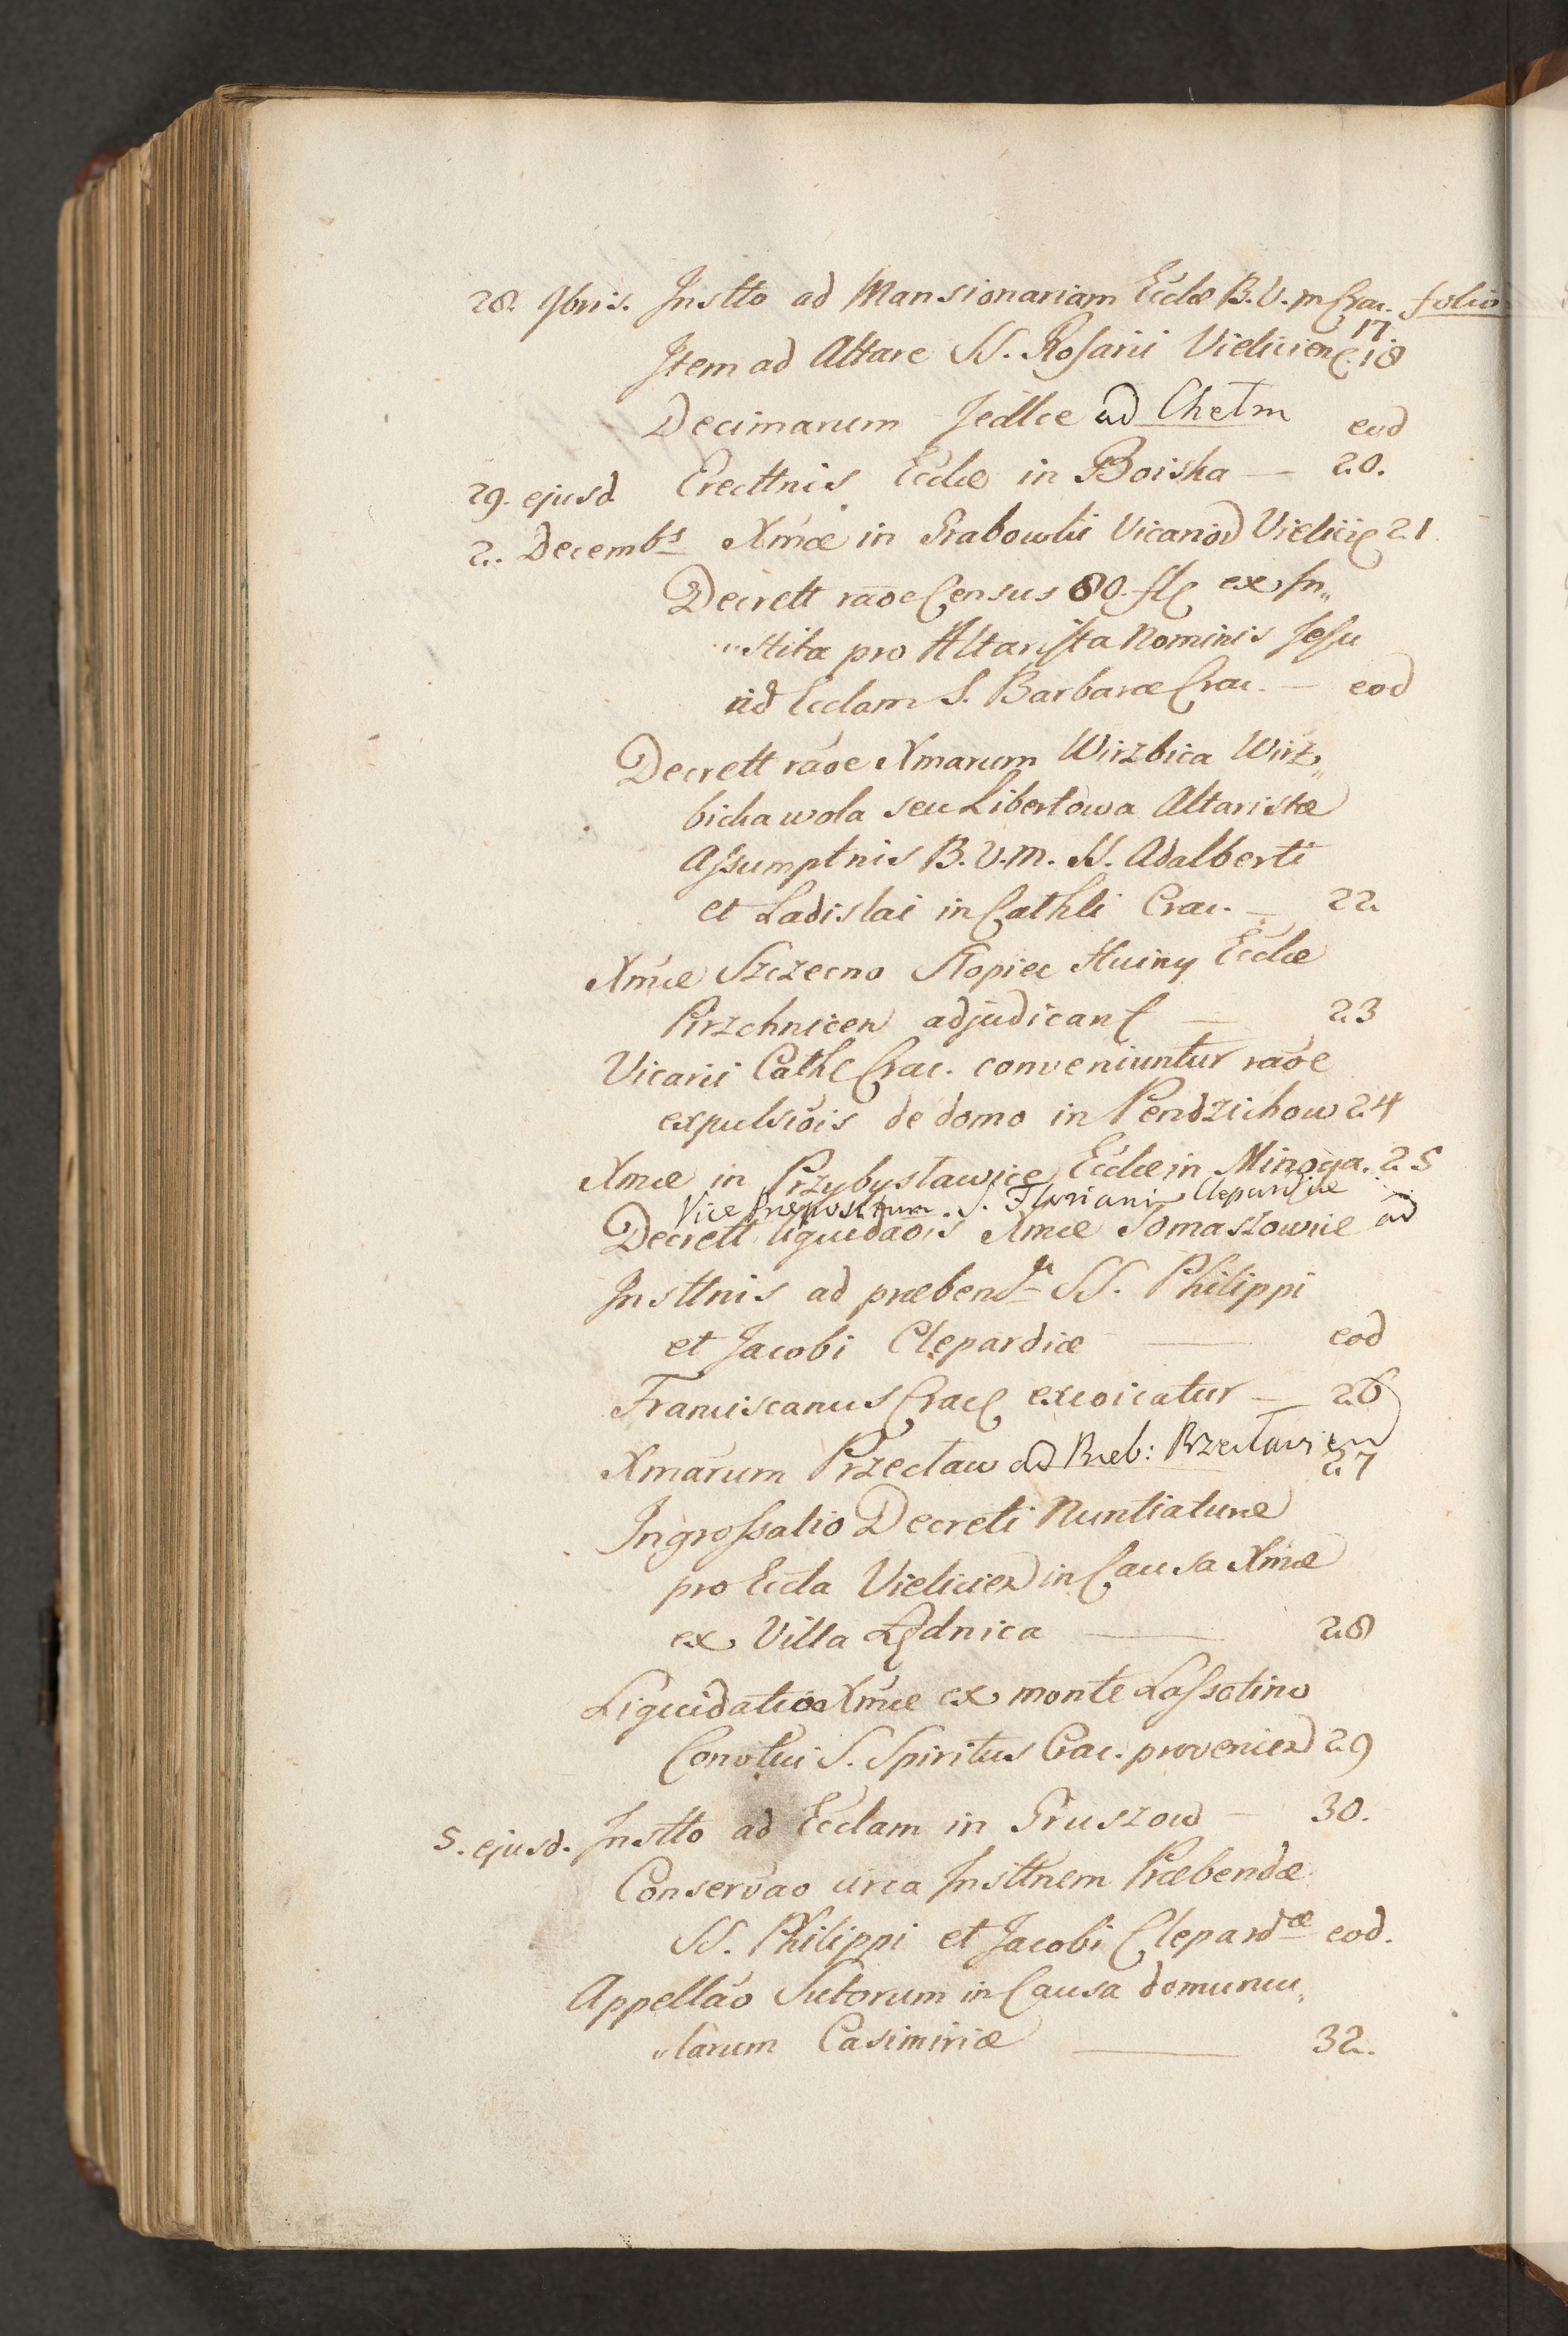 28. 9bris. Instto ad Mansionariam Ecclæ B.V.M Crac. folio
17
Item ad Altare SS. Rosarii Vielicien. 18
Decimarum Jedlce ad Chełm eod
29. ejusd Erecttnis Ecclæ in Boiska — 20.
2. Decembs Xmæ in Grabowki Vicariod Vielicie 21
Decrett raoe Census 80. fl ex In„
„stita pro Altarista Nominis Jesu
ad Ecclam S. Barbaræ Crac. — eod
Decrett raoe Xmarum Wirzbica Wirz„
bicka wola seu Libertowa Altaristæ
Assumptnis B.V.M. SS. Adalberti
et Ladislai in Cathli Crac. — 22
Xmæ Szczecno Słopiec Huiny Ecclæ
Pirzchnicen adjudicant — 23
Vicarii Cathl Crac. conveniuntur raoe
expulsiois de domo in Pendzichow 24
Xmæ in Przybysławice Ecclæ in Minoga. 25
Vice Præpositum S. Floriani Clepardiæ
Decrett liquidaois Xmæ Tomaszowie ad
Insttnis ad præbendā SS. Philippi
et Jacobi Clepardiæ — eod
Franciscanus Crac excoicatur — 26
Xmarum Przecław ad Præb: Przecławien
27
Ingrossatio Decreti Nuntiaturæ
pro Eccla Vielicien in Causa Xmæ
ex Villa Lednica — 28
Liquidatio Xmæ ex monte Lassotino
Convtui S. Spiritus Crac. provenien 29
5. ejusd. Instto ad Ecclam in Gruszow — 30.
Conservao circa Insttnem Præbendæ
SS. Philippi et Jacobi Clepardæ eod.
Appellao Sutorum in Causa domuncu„
„larum Casimiriæ — 32.